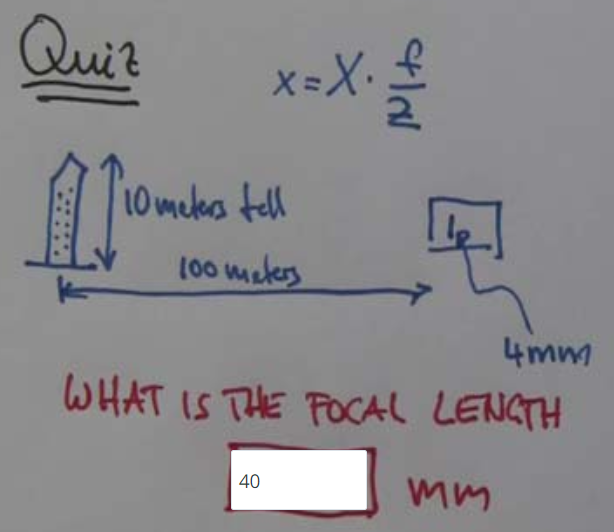 Quiz
x = X · f/Z
10 meters tall
100 meters
1p
4mm
WHAT IS THE FOCAL LENGTH
40 mm